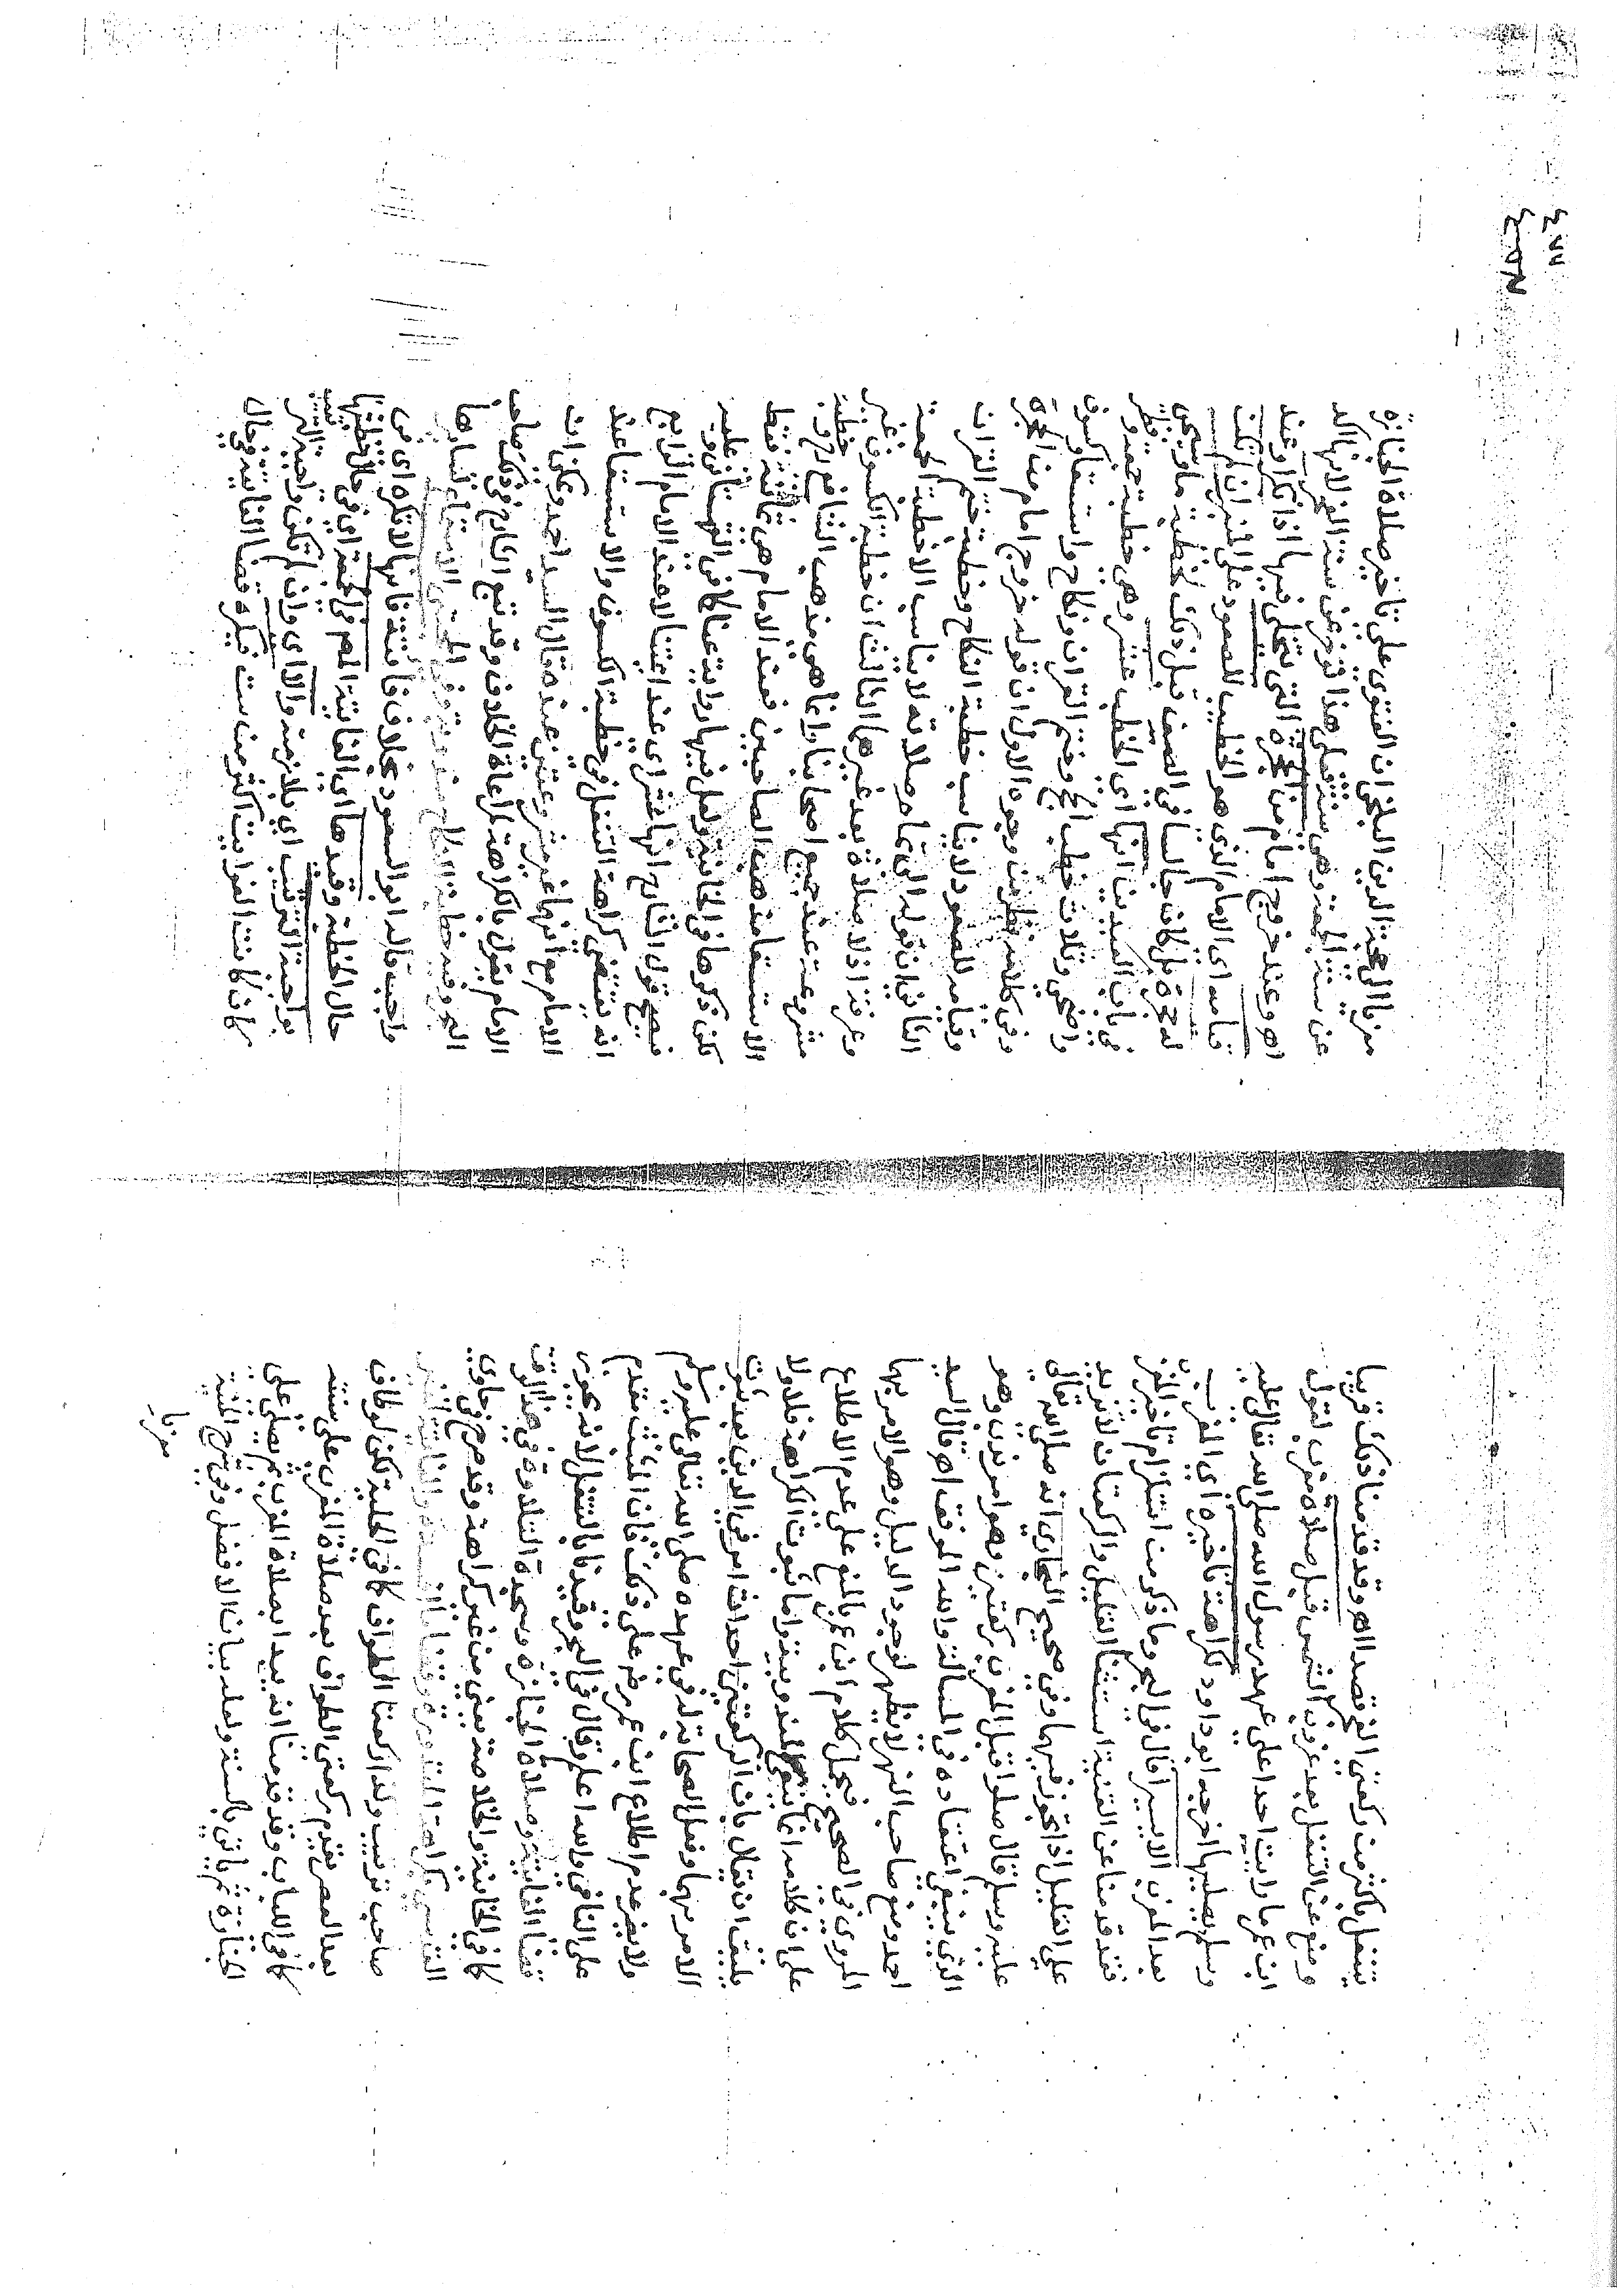 يتنفل باكثر من ركعتي الفجر قصدا اهـ وقد قدمنا ذلك قريبا
ومنع عن التنفل بعد غروب الشمس قبل صلاة مغرب لقول
ابن عمر ما رايت احدا على عهد رسول الله صلى الله تعالى عليه
وسلم يصليها اخرجه ابو داود لكراهة تاخيره اي المغرب
بعد المغرب الا يسيرا قال في البحر وما ذكر من استلزام تاخير المغرب
فقد قدمنا عن القنية استثناء القليل والركعتان لا تزيد
على القليل اذا تجوز فيهما وفي صحيح البخاري انه صلى الله تعالى
عليه وسلم قال صلوا قبل المغرب ركعتين وهو امر ندب وهو
الذي ينبغي اعتقاده في المسالة والله الموفق اهـ قال السيد
احمد ومنع صاحب النهر لا يظهر لوجود الدليل وهو الامر بها
المروي في الصحيح فيحمل كلام ابن عمر بالمنع على عدم الاطلاع
على ان كلامه انما ينفي المندوبية واما ثبوت الكراهة فلا ولا
يلتفت ان يقال بان الركعتين احداث امر في الدين بعد ثبوت
الامر بهما وفعل الصحابة له في عهده صلى الله تعالى عليه وسلم
ولا يضر عدم اطلاع ابن عمر رضي على ذلك فان المثبت مقدم
على النافي والله اعلم وقال في البحر وقيدنا بالتنفل لانه يجوز
قضاء الفائتة وصلاة الجنازة وسجدة التلاوة في هذا الوقت
كما في الخانية والخلاصة يعني من غير كراهة وقد صرح في حاوي
القدسي بكراهة المنذورة وقضاء
صاحب ترتيب ولذا ركعتا الطواف كما في الحلية لكن لو طاف
بعد العصر يقدم ركعتي الطواف بعد صلاة المغرب على سنته
كما في اللباب وقد قدمنا انه يبدا بصلاة المغرب ثم يصلى على
الجنازة ثم ياتي بالسنة ولعله بيان الافضل وفي شرح المنية
معزيا
معزيا الى حجة الدين البلخي ان الفتوى على تاخير صلاة الجنازة
عن سنة الجمعة وهي سنة فعلى هذا تؤخر عن سنة المغرب لانها اكد
اهـ وعند خروج امام من الحجرة التي يتخلى فيها اذا تكرا وعند
قيامه اي الامام الذي هو الخطيب للصعود على المنبر ان لم تكن
له حجرة بل كان جالسا في الصف قبل ذلك لخطبة ما وسيجي
في باب العيدين انها اي الخطب عشر وهي خطبة جمعة وفطر
واضحى وثلاث خطب الحج وختم القران ونكاح واستسقا وكسوف
وفي كلامه نظر من وجوه الاول ان قوله خروج امام من الحجرة
وقيامه للصعود لا يناسب خطبة النكاح وخطبة ختم القران
الثاني ان قوله الى تمام صلاته لا يناسب الا خطبة الجمعة
وعرفة اذ لا صلاة بعد غيرهما الثالث ان خطبة الكسوف غير
مشروعة عند جميع اصحابنا وانما هي مذهب الشافعي الرابع خطبة
الاستسقا مذهب الصاحبين فعند الامام هي ثمانية فقط
لكن ذكرها في الخانية ولعل فيها رواية عنا كما في القهستاني وعليه
فيصح قول الشارح انها عشر اي عند ايمتنا لا عند الامام الرابع
انه يقتضي كراهة التنفل في خطبة الكسوف والاستسقا عند
الامام مع انهما غير مشروعتين عنده قال السيد احمد ويمكن ان
الامام يقول بالكراهة لمراعاة الخلاف وقد تبع الشارح في ذلك صاحب
البحر وقيد خطبة النكاح
واجبة قاله ابو السعود بخلاف فائتة فانها لا تكره اي من
حال الخطبة وقيدها اي الفائتة المص في الجمعة اي في حال خطبتها
بواجبة الترتيب اي بلازمته والا اي وان لم تكن واجبة الترتيب
كان كانت الفوايت اكثر من ست فيكره قضا الفائتة في حال